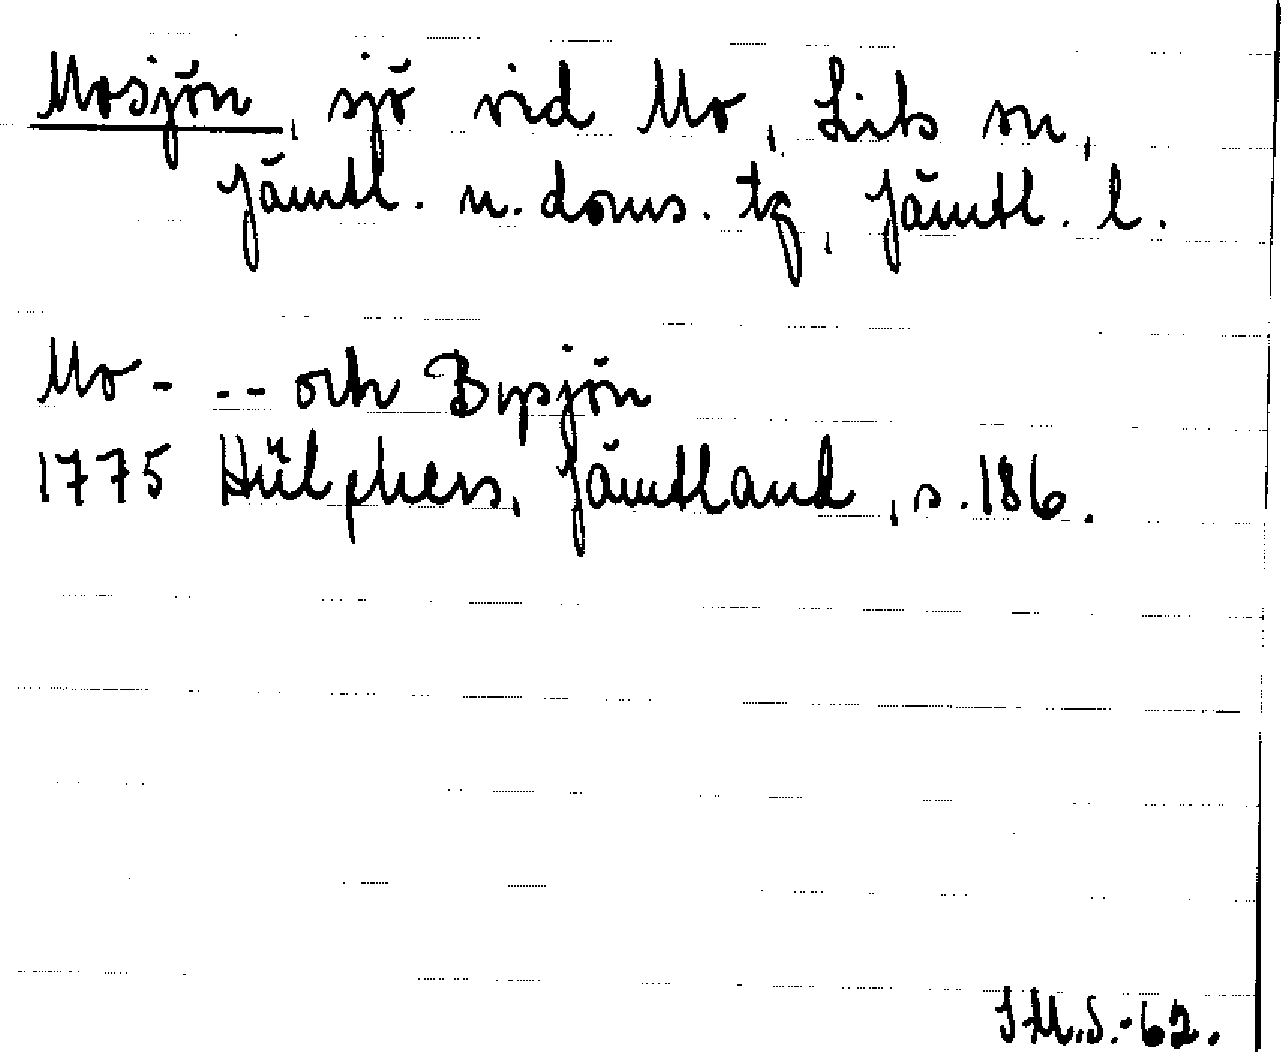 Mosjön, sjö vid Mo, Lits sn,
Jämtl. n. doms. tg, Jämtl. l.
Mo- -- och Bysjön
1775 Hülphers, Jämtland, s. 186.
I.M.S.-62.